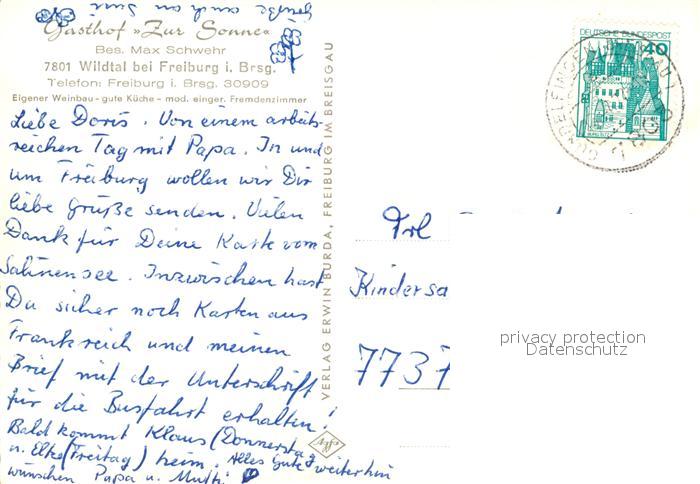 Grüße auch an Susi
Gasthof »Zur Sonne«
Bes. Max Schwehr
7801 Wildtal bei Freiburg i. Brsg.
Telefon: Freiburg i. Brsg. 30909
Eigener Weinbau - gute Küche - mod. einger. Fremdenzimmer
Liebe Doris. Von einem arbeits-
reichen Tag mit Papa. In und
um Freiburg wollen wir Dir
liebe Grüße senden. Vielen
Dank für Deine Karte vom
Salinensee. Inzwischen hast
Du sicher noch Karten aus
Frankreich und meinen
Brief mit der Unterschrift
für die Busfahrt erhalten!
Bald kommt Klaus (Donnerstag
u. Elke (Freitag) heim. Alles Gute weiterhin
wünschen Papa u. Mutti
VERLAG ERWIN BURDA, FREIBURG IM BREISGAU
Agfa
DEUTSCHE BUNDESPOST
40
GUNDELFINGEN
Frl
Kindersa
7737
privacy protection
Datenschutz